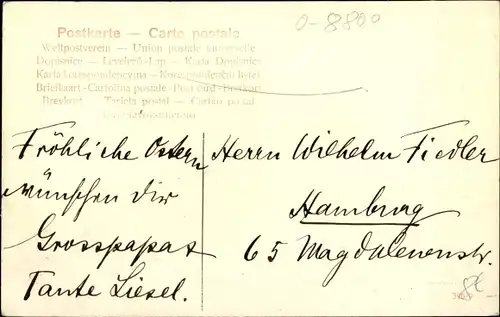 0-8800
Postkarte — Carte postale
Weltpostverein — Union postale universelle
Dopisnice — Levelező-Lap — Karta Dopisnica
Karta korrespondencyjna — Korespondenční lístek
Briefkaart - Cartolina postale - Post card - Brefkort
Brevkort — Tarjeta postal — Cartão postal
Fröhliche Ostern
wünschen dir
Grosspapa &
Tante Liesel.
Herrn Wilhelm Fiedler
Hamburg
65 Magdalenenstr.